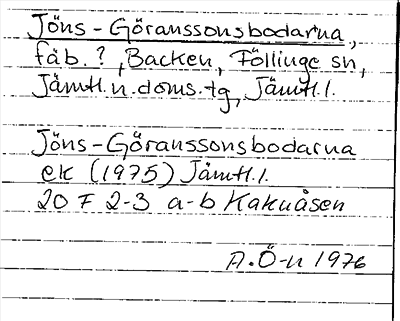 Jöns-Göranssonsbodarna,
fäb. ?, Backen, Föllinge sn,
Jämtl. n. doms. tg, Jämtl. l.
Jöns-Göranssonsbodarna
ek (1975) Jämtl. l.
20 F 2-3 a-b Kakuåsen
A. Ö-n 1976